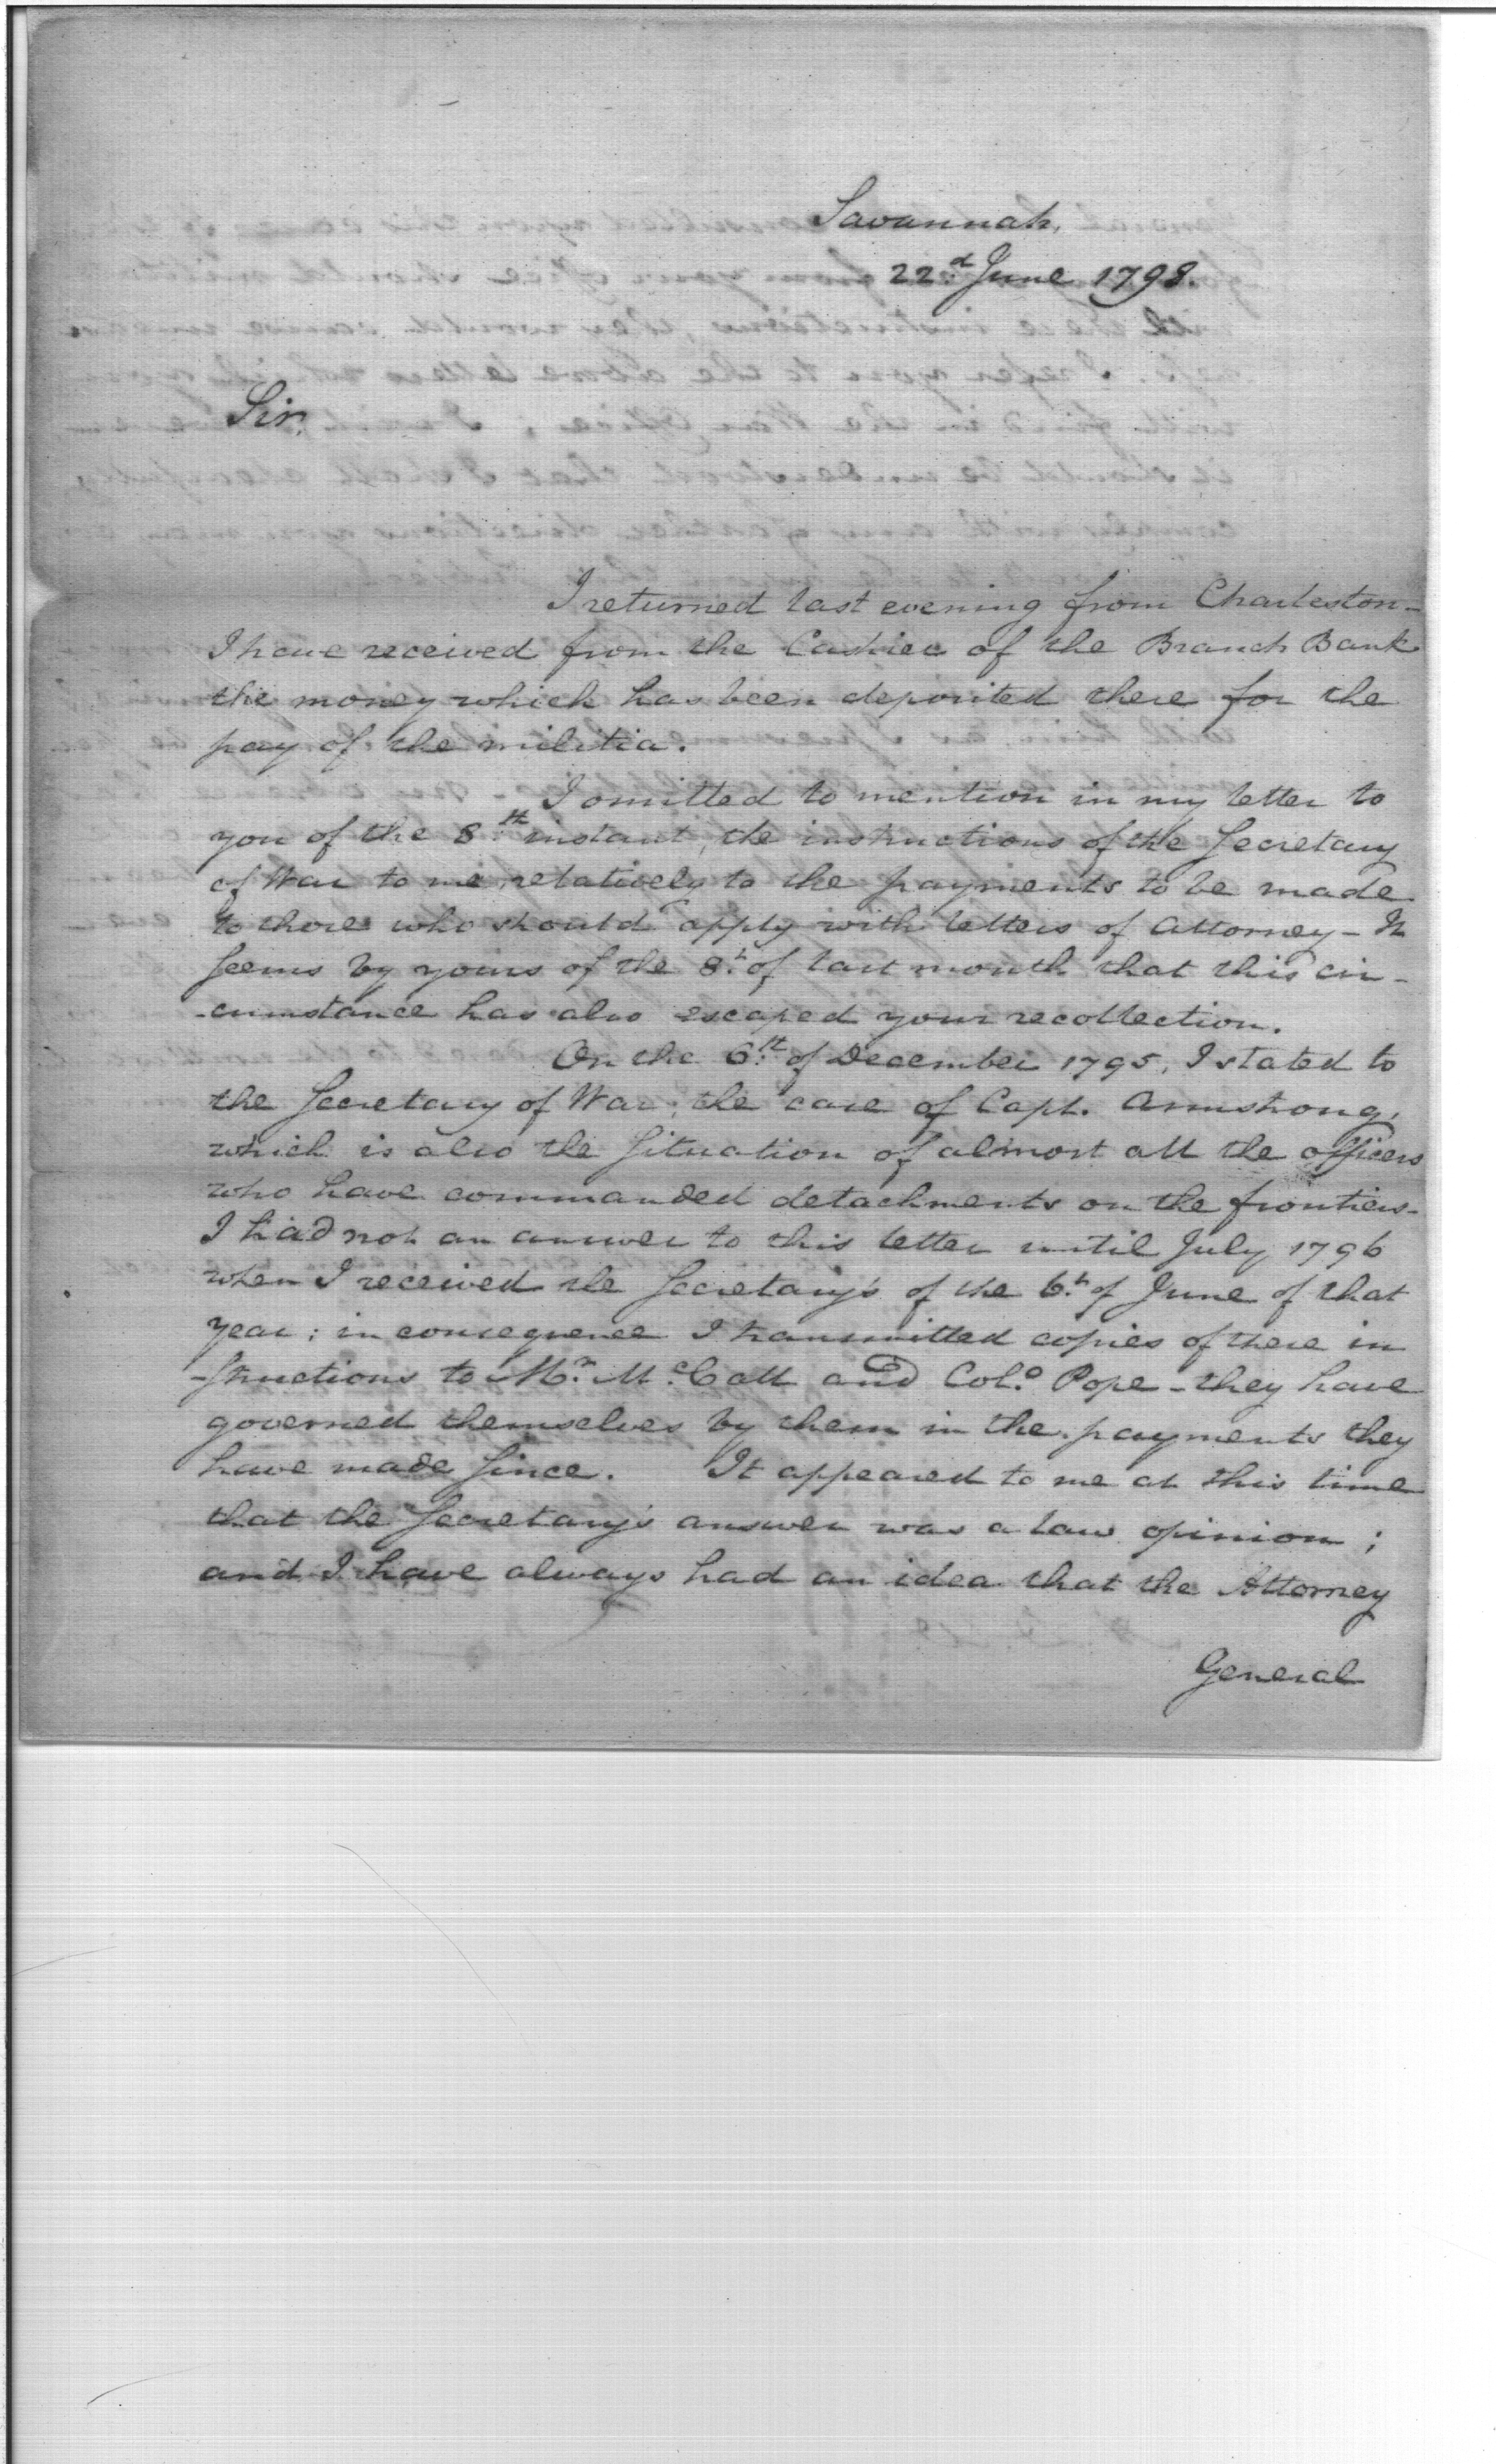 Savannah,
22.d June 1798.
Sir,
I returned last evening from Charleston-
I have received from the Cashier of the Branch Bank
the money which has been deposited there for the
pay of the militia.
I omitted to mention in my letter to
you of the 8.th instant, the instructions of the Secretary
of War to me, relatively to the payments to be made
to those who should apply with letters of attorney - It
seems by yours of the 8.h of last month that this cir-
-cumstance has also escaped your recollection.
On the 6.th of December 1795, I stated to
the Secretary of War, the case of Capt. Armstrong,
which is also the situation of almost all the officers
who have commanded detachments on the frontiers-
I had not an answer to this letter until July 1796
when I received the Secretary's of the 6.h of June of that
year; in consequence I transmitted copies of these in
-structions to Mr. Mc.Call and Colo. Pope - they have
governed themselves by them in the payments they
have made since. It appeared to me at this time
that the Secretary's answer was a law opinion;
and I have always had an idea that the Attorney
General